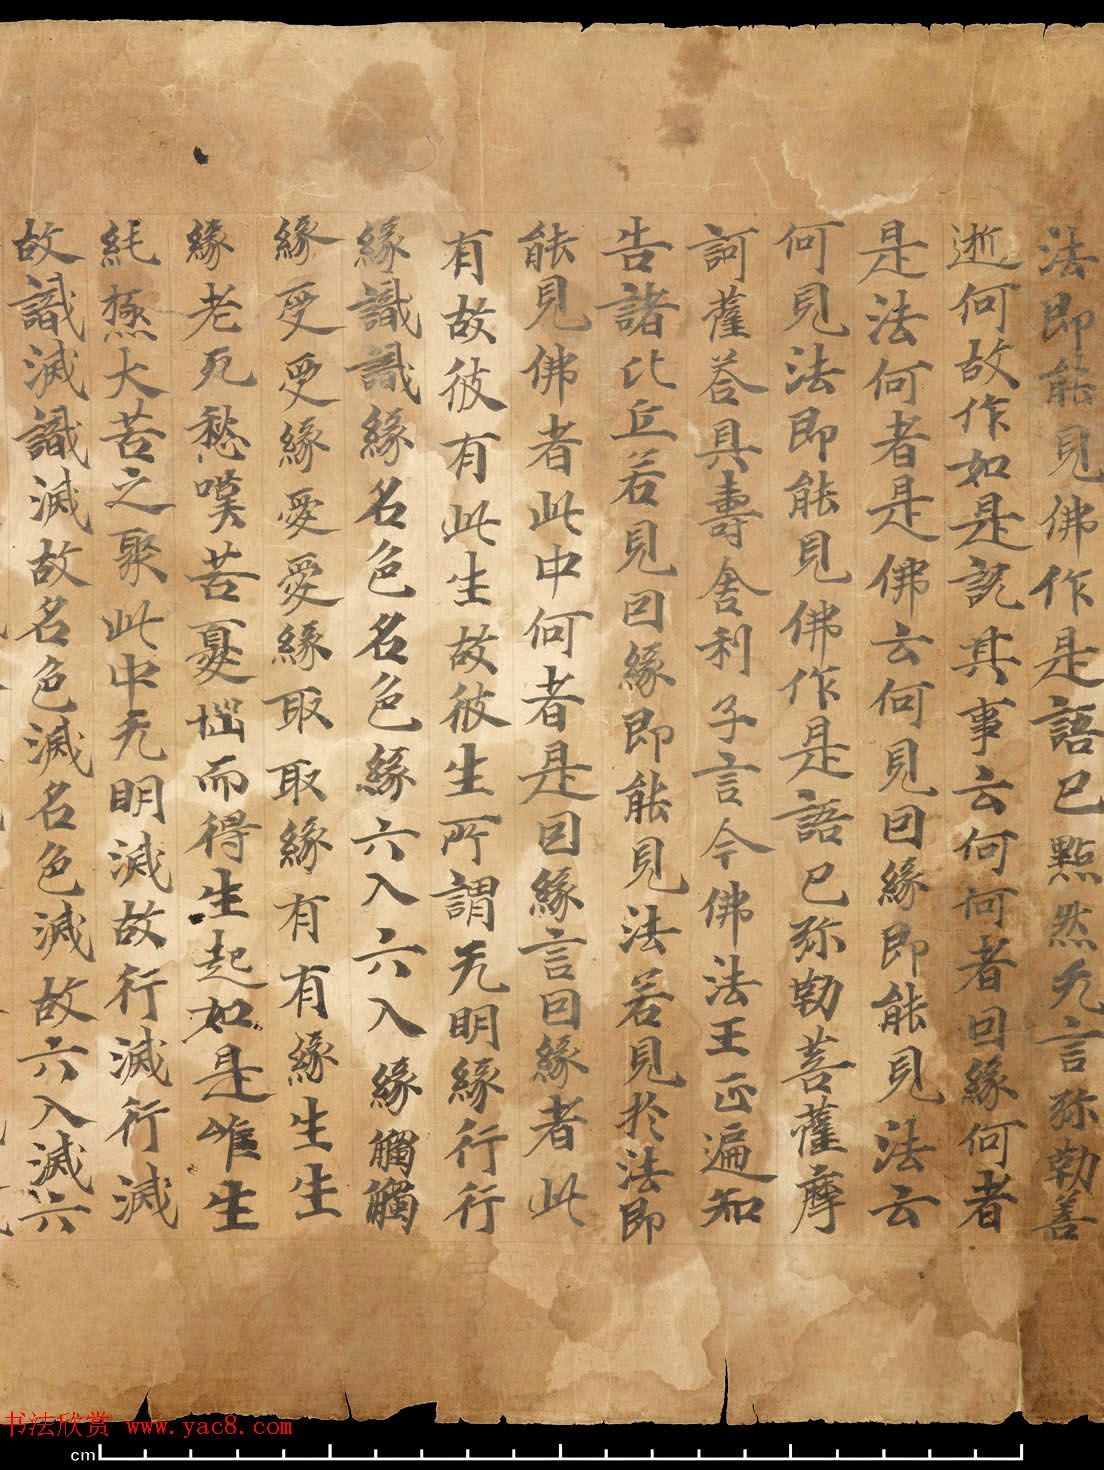 法即能見佛作是語已默然无言弥勒善
逝何故作如是說其事云何何者回緣何者
是法何者是佛云何見回緣即能見法云
何見法即能見佛作是語已弥勒菩薩摩
訶薩荅具壽舍利子言今佛法王正遍知
告諸比丘若見回緣即能見法若見於法即
能見佛者此中何者是回緣言回緣者此
有故彼有此生故彼生所謂无明緣行行
緣識識緣名色名色緣六入六入緣觸觸
緣受受緣愛愛緣取取緣有有緣生生
緣老死愁嘆苦憂惱而得生起如是唯生
純極大苦之聚此中无明滅故行滅行滅
故識滅識滅故名色滅名色滅故六入滅六
书法欣赏 www.yac8.com
cm